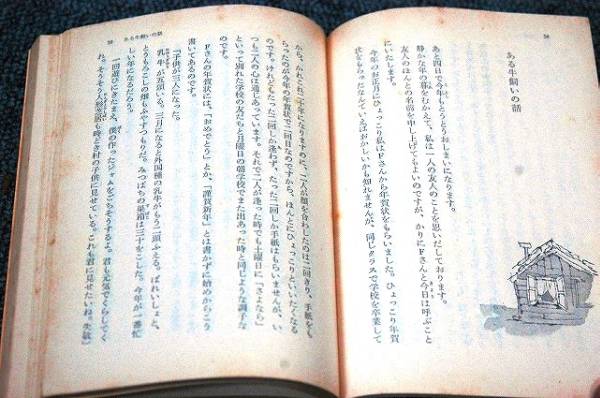 58
ある牛飼いの話
あと四日で今年もとうとうおしまいになります。
静かな年の暮をむかえて、私は一人の友人のことを思いだしております。
友人のほんとの名前を申し上げてもよいのですが、かりにFさんと今日は呼ぶこと
にいたします。
今年のお正月にひょっこり私はFさんから年賀状をもらいました。ひょっこり年賀
状をもらったなんていえばおかしいかも知れませんが、同じクラスで学校を卒業して
59 ある牛飼いの話
から、かれこれ二十年になりますのに、二人が顔を合わしたのは二回きり、手紙をも
らったのが今年の年賀状で二回目なのですから、ほんとにひょっこりといいたくなる
のです。けれどもたった二回しか逢わず、たった二回しか手紙はもらいませんが、い
つも二人の心は通しあっています。それで二人が逢った時でも土曜日に「さよなら」
といって別れた学校の友だちと月曜日の朝学校でまた出あった時と同じような調子な
のです。
Fさんの年賀状には、「おめでとう」とか、「謹賀新年」とは書かずに始めからこう
書いてあるのです。
「子供が三人になった。
乳牛が五頭いる。三月になると外国種の乳牛がもう二頭ふえる。ばれいしょと、
とうもろこしの畑もふやすつもりだ。みつばちの巣箱は三十をこした。今年が一番忙
しい年になるだろう。
一回遊びにきたまえ、僕の作ったジャムをごちそうするよ。君も元気でくらしてく
れ。そうそう人形芝居も時どき村の子供に見せている。これも君に見せたいね。失敬」